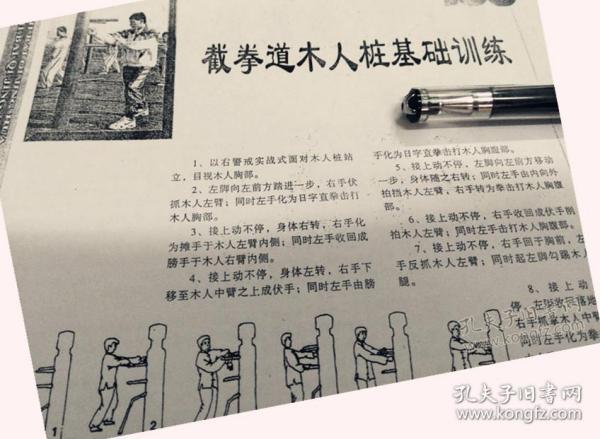 截拳道木人桩基础训练
1、以右警戒实战式面对木人桩站
立，目视木人胸部。
2、左脚向左前方踏进一步，右手伏
抓木人左臂；同时左手化为日字直拳击打
木人胸部。
3、接上动不停，身体右转，右手化
为摊手于木人左臂内侧；同时左手收回成
膀手于木人右臂内侧。
4、接上动不停，身体左转，右手下
移至木人中臂之上成伏手；同时左手由膀
手化为日字直拳击打木人胸腹部。
5、接上动不停，左脚向左前方移动
一步，身体随之右转；同时左手由内向外
拍挡木人左臂，右手转为拳击打木人胸腹
部。
6、接上动不停，右手收回成伏手削
拍木人左臂；同时左手击打木人胸腹部。
7、接上动不停，右手回于胸前，左
手反抓木人左臂；同时起左脚勾踢木人
腿。
8、接上动
停，左脚收回落地
右手抓拿木人中臂
同时左手化为拳
1
2
孔夫子旧书网
孔夫子旧书网
www.kongfz.com